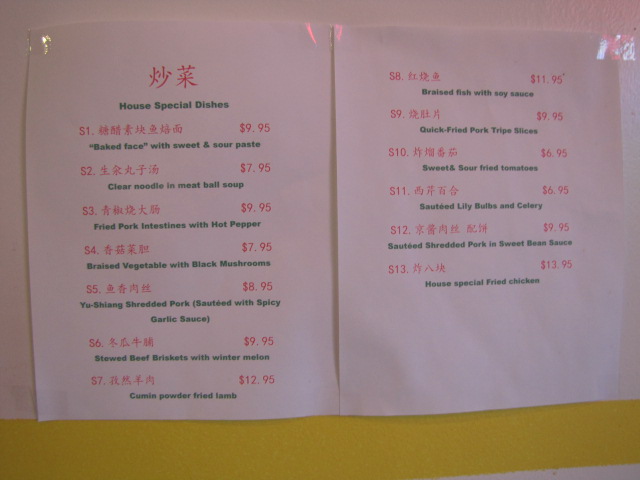 炒菜
House Special Dishes
S1. 糖醋素块鱼焙面 $9.95
"Baked face" with sweet & sour paste
S2. 生汆丸子汤 $7.95
Clear noodle in meat ball soup
S3. 青椒烧大肠 $9.95
Fried Pork Intestines with Hot Pepper
S4. 香菇菜胆 $7.95
Braised Vegetable with Black Mushrooms
S5. 鱼香肉丝 $8.95
Yu-Shiang Shredded Pork (Sautéed with Spicy
Garlic Sauce)
S6. 冬瓜牛脯 $9.95
Stewed Beef Briskets with winter melon
S7. 孜然羊肉 $12.95
Cumin powder fried lamb
S8. 红烧鱼 $11.95
Braised fish with soy sauce
S9. 烧肚片 $9.95
Quick-Fried Pork Tripe Slices
S10. 炸熘番茄 $6.95
Sweet& Sour fried tomatoes
S11. 西芹百合 $6.95
Sautéed Lily Bulbs and Celery
S12. 京酱肉丝 配饼 $9.95
Sautéed Shredded Pork in Sweet Bean Sauce
S13. 炸八块 $13.95
House special Fried chicken